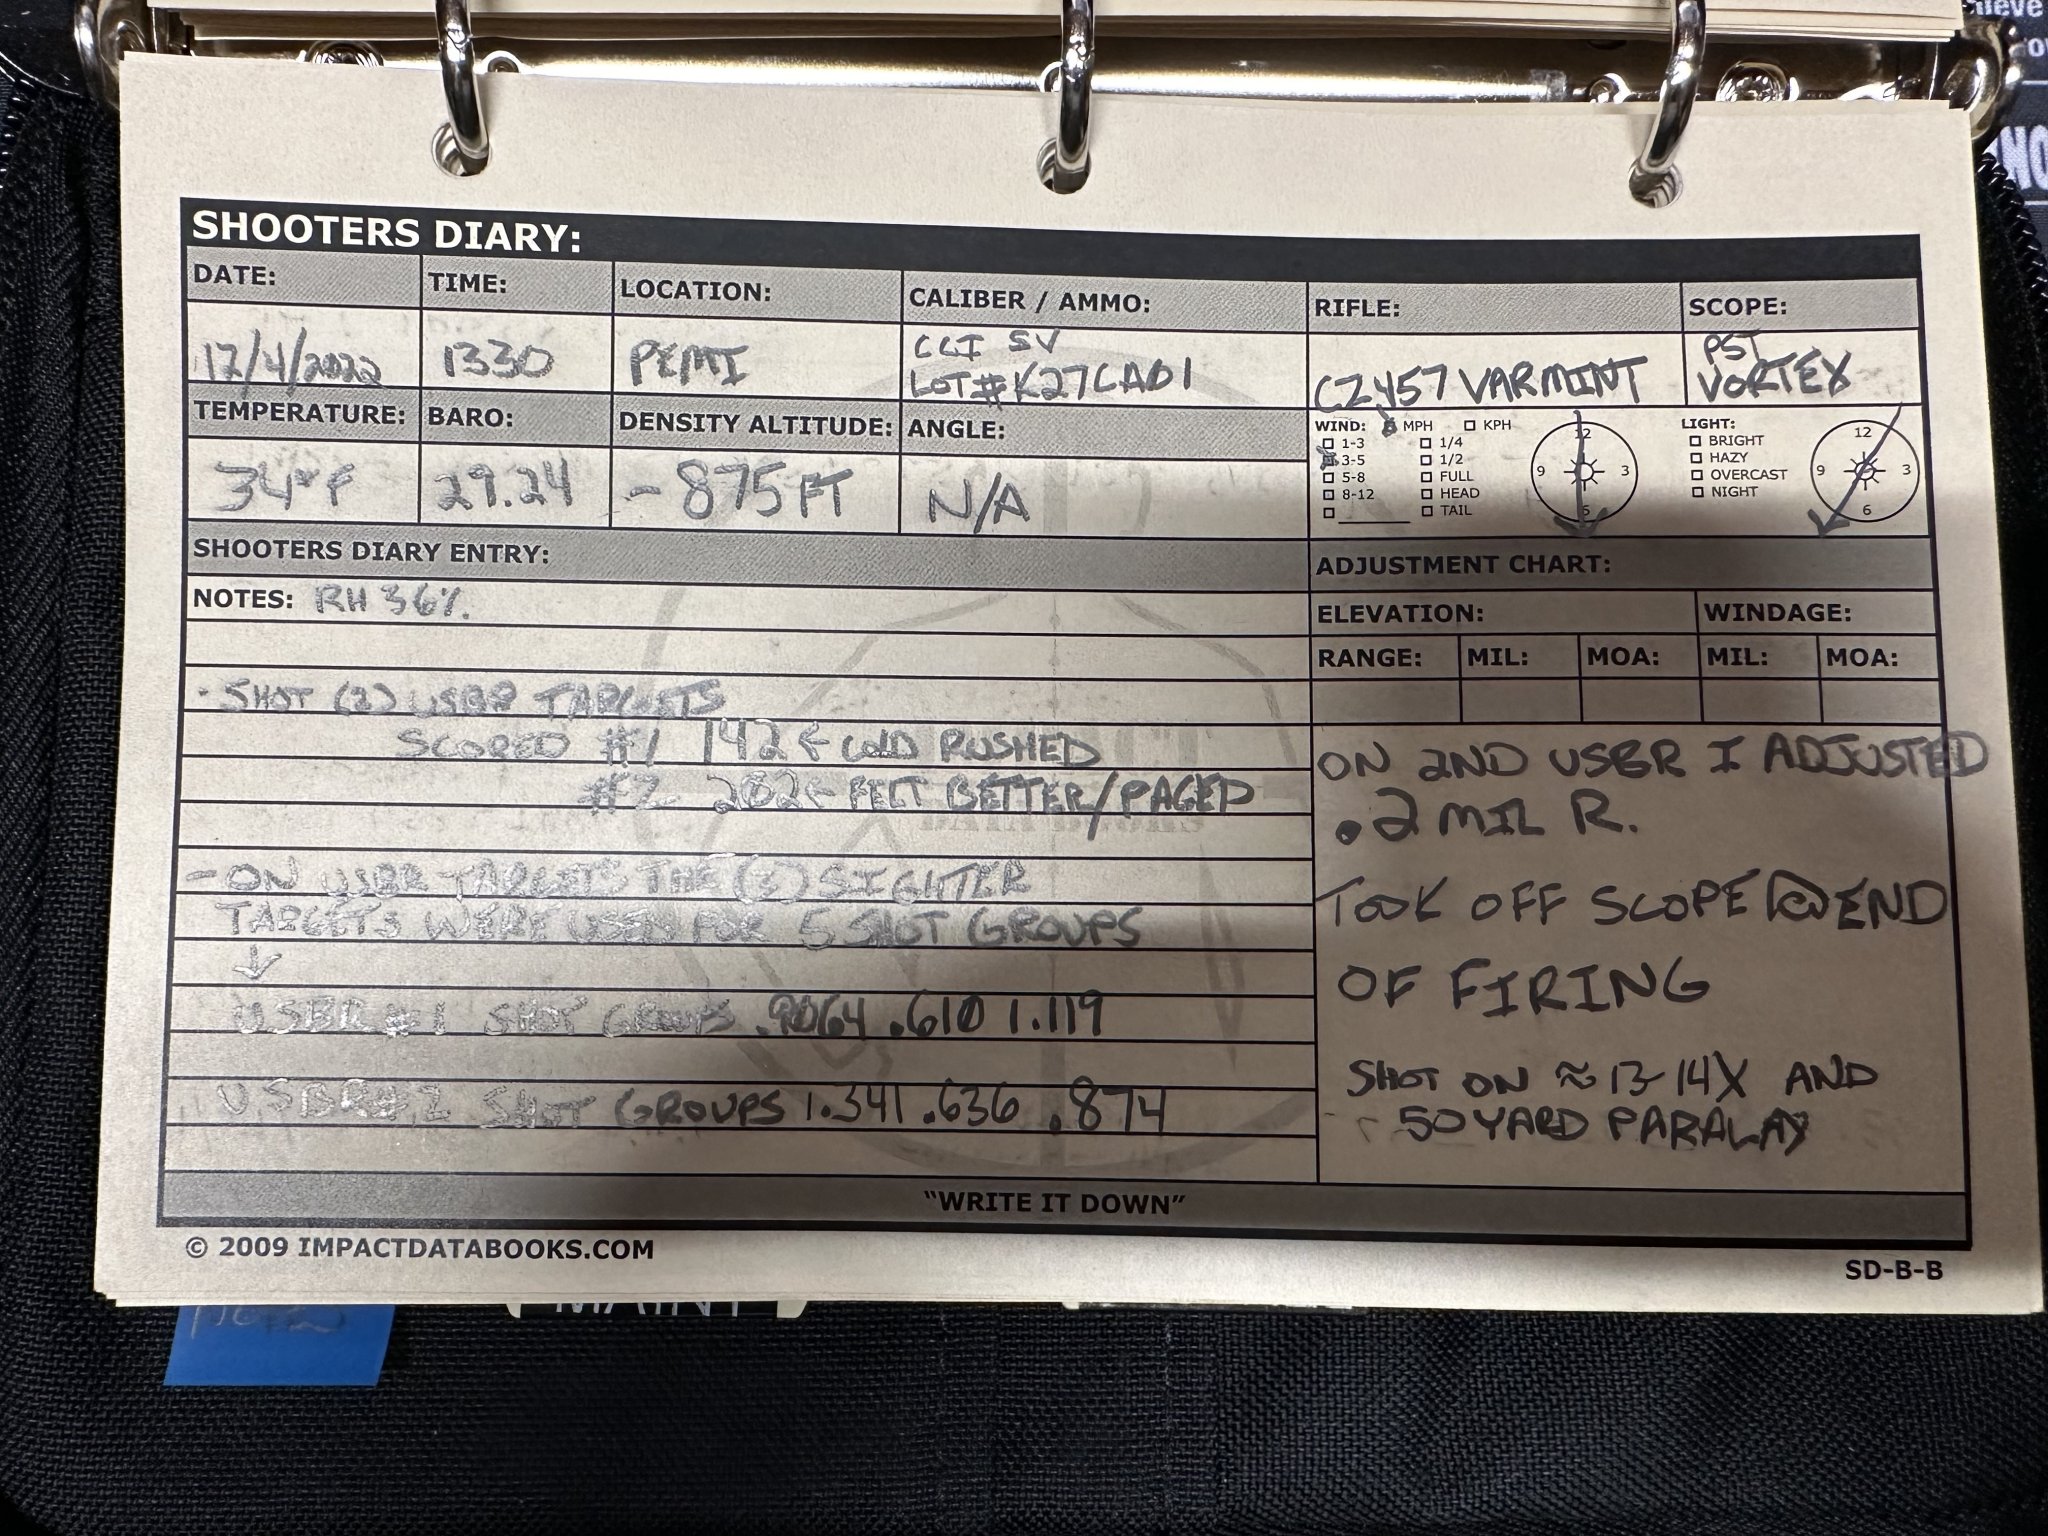 ieve
NO
SHOOTERS DIARY:
DATE: TIME: LOCATION: CALIBER / AMMO: RIFLE: SCOPE:
12/4/2022 1330 PEMI CCI SV
LOT#K27CA01 CZ457 VARMINT PST
VORTEX
TEMPERATURE: BARO: DENSITY ALTITUDE: ANGLE:
34°F 29.24 -875FT N/A
WIND: MPH KPH
1-3 1/4
3-5 1/2
5-8 FULL
8-12 HEAD
TAIL
12
9 3
6
LIGHT:
BRIGHT
HAZY
OVERCAST
NIGHT
12
9 3
6
SHOOTERS DIARY ENTRY:
NOTES: RH 36%
- SHOT (2) USBR TARGETS
SCORED #1 142 ← COLD RUSHED
#2 202 ← FELT BETTER/PACED
- ON USBR TARGETS THE (3) SIGHTER
TARGETS WERE USED FOR 5 SHOT GROUPS
↓
USBR#1 SHOT GROUPS .9064 .610 1.119
USBR#2 SHOT GROUPS 1.341 .636 .874
ADJUSTMENT CHART:
ELEVATION: WINDAGE:
RANGE: MIL: MOA: MIL: MOA:
ON 2ND USBR I ADJUSTED
.2 MIL R.
TOOK OFF SCOPE @ END
OF FIRING
SHOT ON ≈13-14X AND
50 YARD PARALAY
"WRITE IT DOWN"
© 2009 IMPACTDATABOOKS.COM
SD-B-B